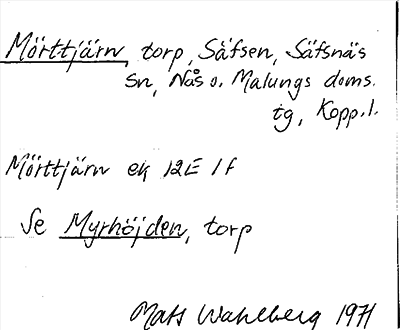 Mörttjärn, torp, Säfsen, Säfsnäs
sn, Nås o. Malungs doms.
tg, Kopp.l.
Mörttjärn ek 12E 1f
Se Myrhöjden, torp
Mats Wahlberg 1971